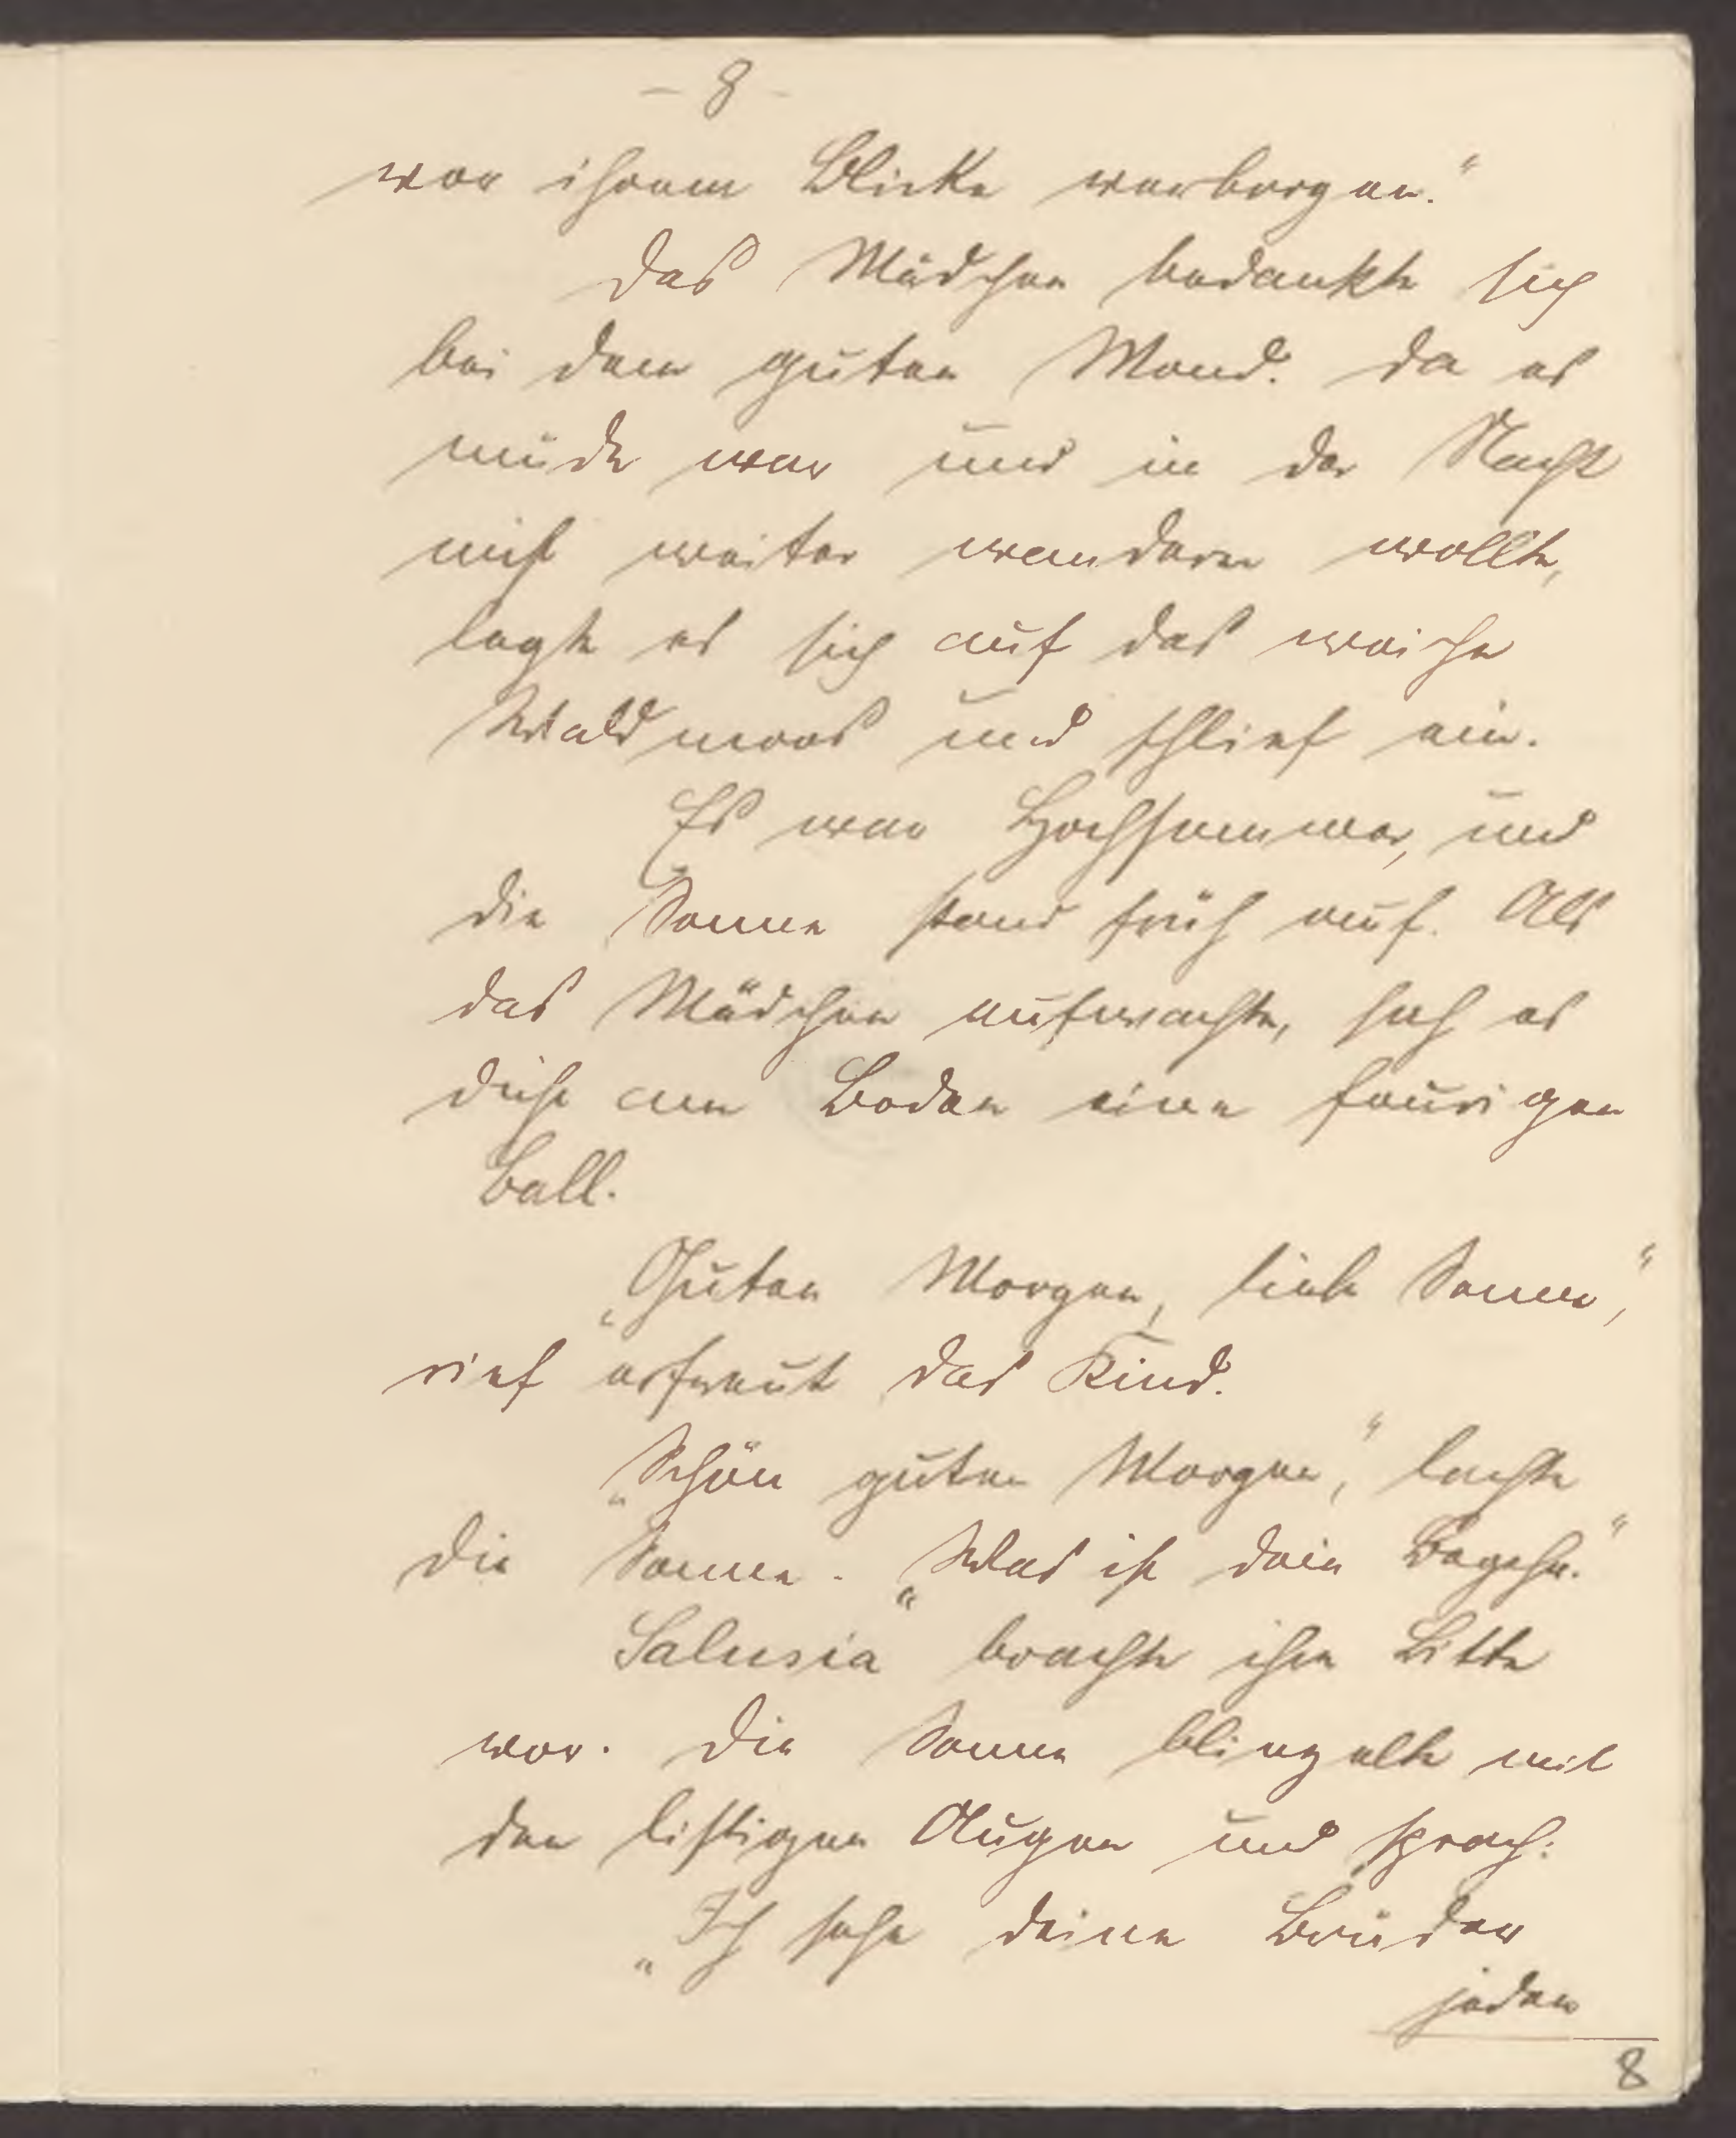 – 8 –
vor ihrem Blicke verborgen."
Das Mädchen bedankte sich
bei dem guten Mond. Da es
müde war und in der Nacht
nicht weiter wandern wollte,
legte es sich auf das weiche
Waldmoos und schlief ein.
Es war Hochsommer, und
die Sonne stand früh auf. Als
das Mädchen aufwachte, sah es
dicht am Boden einen feurigen
Ball.
„Guten Morgen, liebe Sonne",
rief erfreut das Kind.
„Schön guten Morgen", lachte
die Sonne. „Was ist dein Begehr."
Salusia brachte ihre Bitte
vor. Die Sonne blinzelte mit
den listigen Augen und sprach:
„Ich sehe deine Brüder
jeden
8